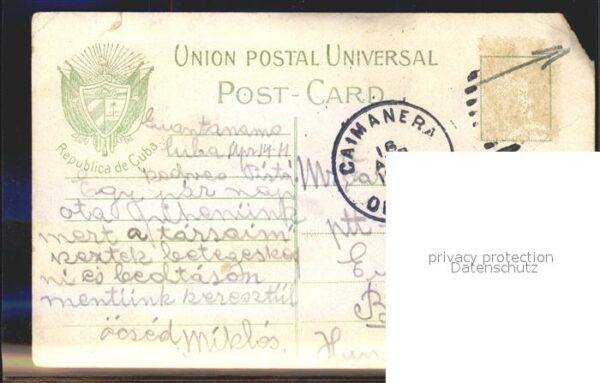 UNION POSTAL UNIVERSAL
POST-CARD
Republica de Cuba
CAIMANERA
16
Guantanamo
Cuba Apr 14-11
kedves Pista!
Egy pár nap
óta pihenünk
mert a társaim
keztek betegesked
ni és beoltáson
mentünk keresztül
öcséd Miklós.
privacy protection
Datenschutz